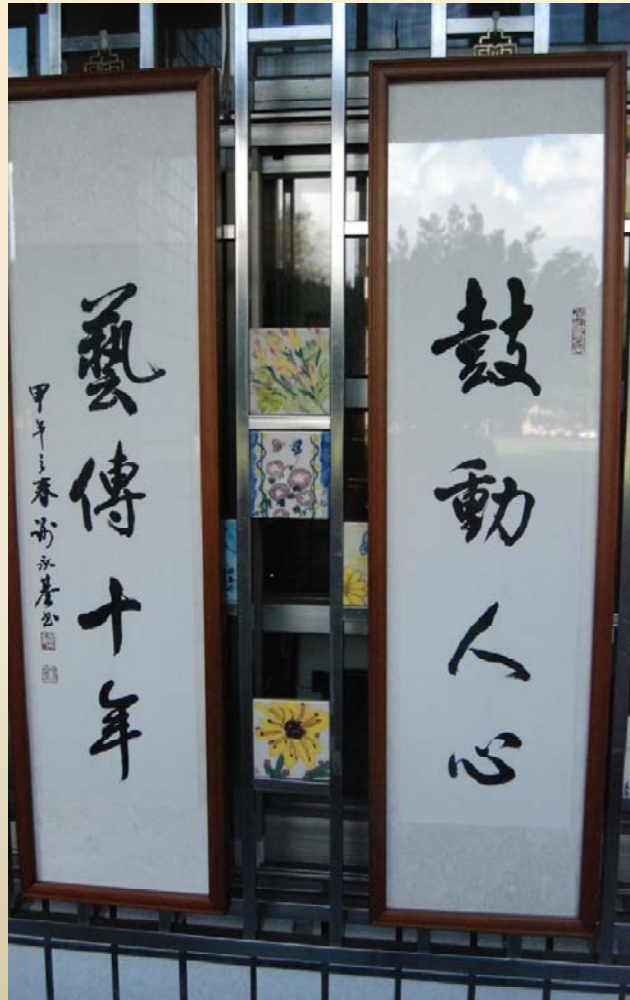 鼓動人心
藝傳十年
甲午之春 謝永基書